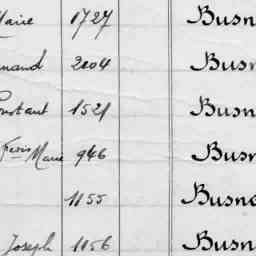 Marie 1727 Busn
nand 2004 Busn
onstant 1521 Busn
Fcois Marie 946 Busn
1155 Busno
Joseph 1156 Busn